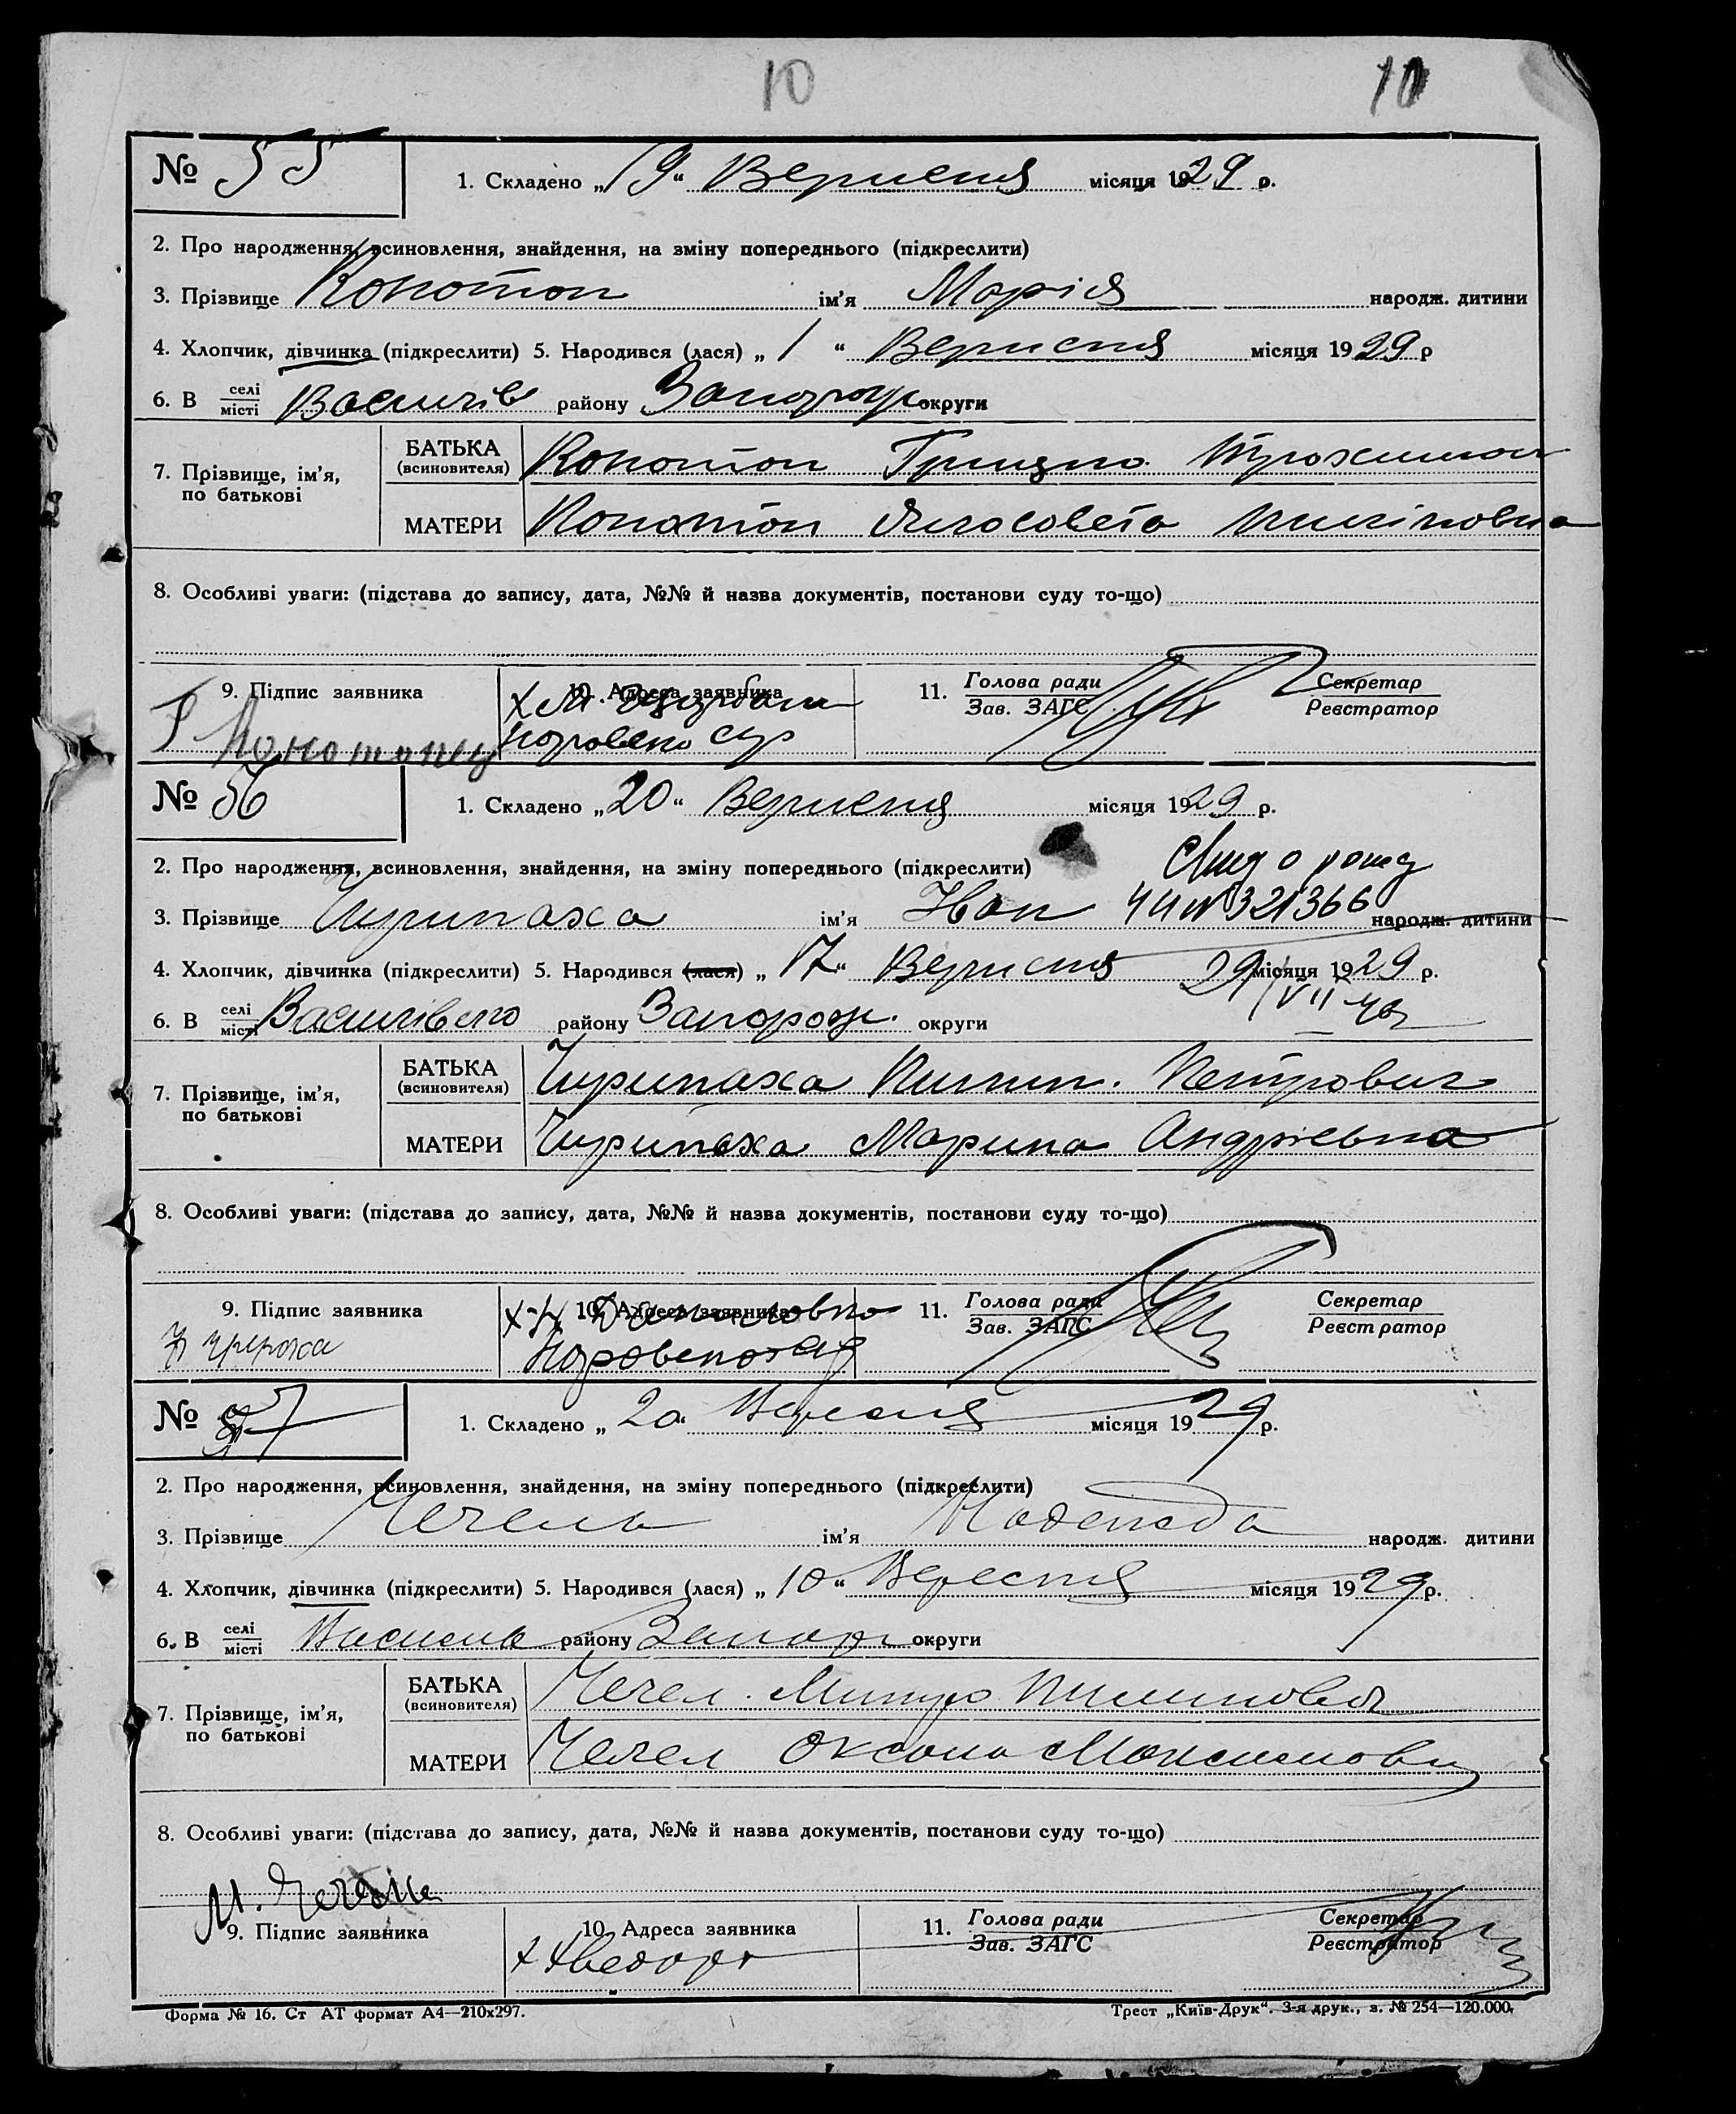 10 10
№ 55 1. Складено „19“ Вересня місяця 1929 р.
2. Про народження, всиновлення, знайдення, на зміну попереднього (підкреслити)
3. Прізвище Конотоп ім'я Марія народж. дитини
4. Хлопчик, дівчинка (підкреслити) 5. Народився (лася) „1“ Вересня місяця 1929 р
6. В селі місті Василів району Запорож округи
7. Прізвище, ім'я, по батькові БАТЬКА (всиновителя) Конотоп Грицько
МАТЕРИ Конотоп
8. Особливі уваги: (підстава до запису, дата, №№ й назва документів, постанови суду то-що)
9. Підпис заявника 10. Адреса заявника 11. Голова ради Зав. ЗАГС Секретар Реєстратор
№ 56 1. Складено „20“ Вересня місяця 1929 р.
2. Про народження, всиновлення, знайдення, на зміну попереднього (підкреслити)
3. Прізвище Чирипаха ім'я Іван 321366 народж. дитини
4. Хлопчик, дівчинка (підкреслити) 5. Народився (лася) „17“ Вересня місяця 1929 р.
6. В селі місті Василівсько району Запорож. округи
7. Прізвище, ім'я, по батькові БАТЬКА (всиновителя) Чирипаха Пилип. Петрович
МАТЕРИ Чирипаха Марина Андрієвна
8. Особливі уваги: (підстава до запису, дата, №№ й назва документів, постанови суду то-що)
9. Підпис заявника 10. Адреса заявника 11. Голова ради Зав. ЗАГС Секретар Реєстратор
№ 57 1. Складено „20“ Вересня місяця 1929 р.
2. Про народження, всиновлення, знайдення, на зміну попереднього (підкреслити)
3. Прізвище Чечель ім'я народж. дитини
4. Хлопчик, дівчинка (підкреслити) 5. Народився (лася) „10“ Вересня місяця 1929 р.
6. В селі місті району округи
7. Прізвище, ім'я, по батькові БАТЬКА (всиновителя) Чечел. Митро Пилипович
МАТЕРИ Чечел Оксана Максимовна
8. Особливі уваги: (підстава до запису, дата, №№ й назва документів, постанови суду то-що)
9. Підпис заявника 10. Адреса заявника 11. Голова ради Зав. ЗАГС Секретар Реєстратор
Форма № 16. Ст АТ формат А4—210х297. Трест „Київ-Друк“. 3-я друк., з. № 254—120.000.